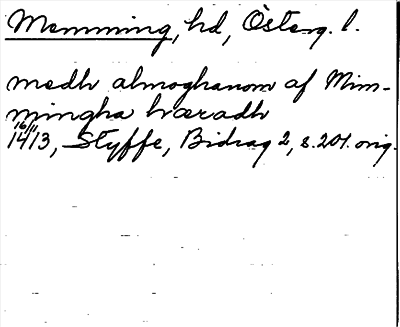 Memming, hd, Österg. l.
medh almoghanom af Mim-
mingha hæradh
16/11
1413, Styffe, Bidrag 2, s. 201. orig.